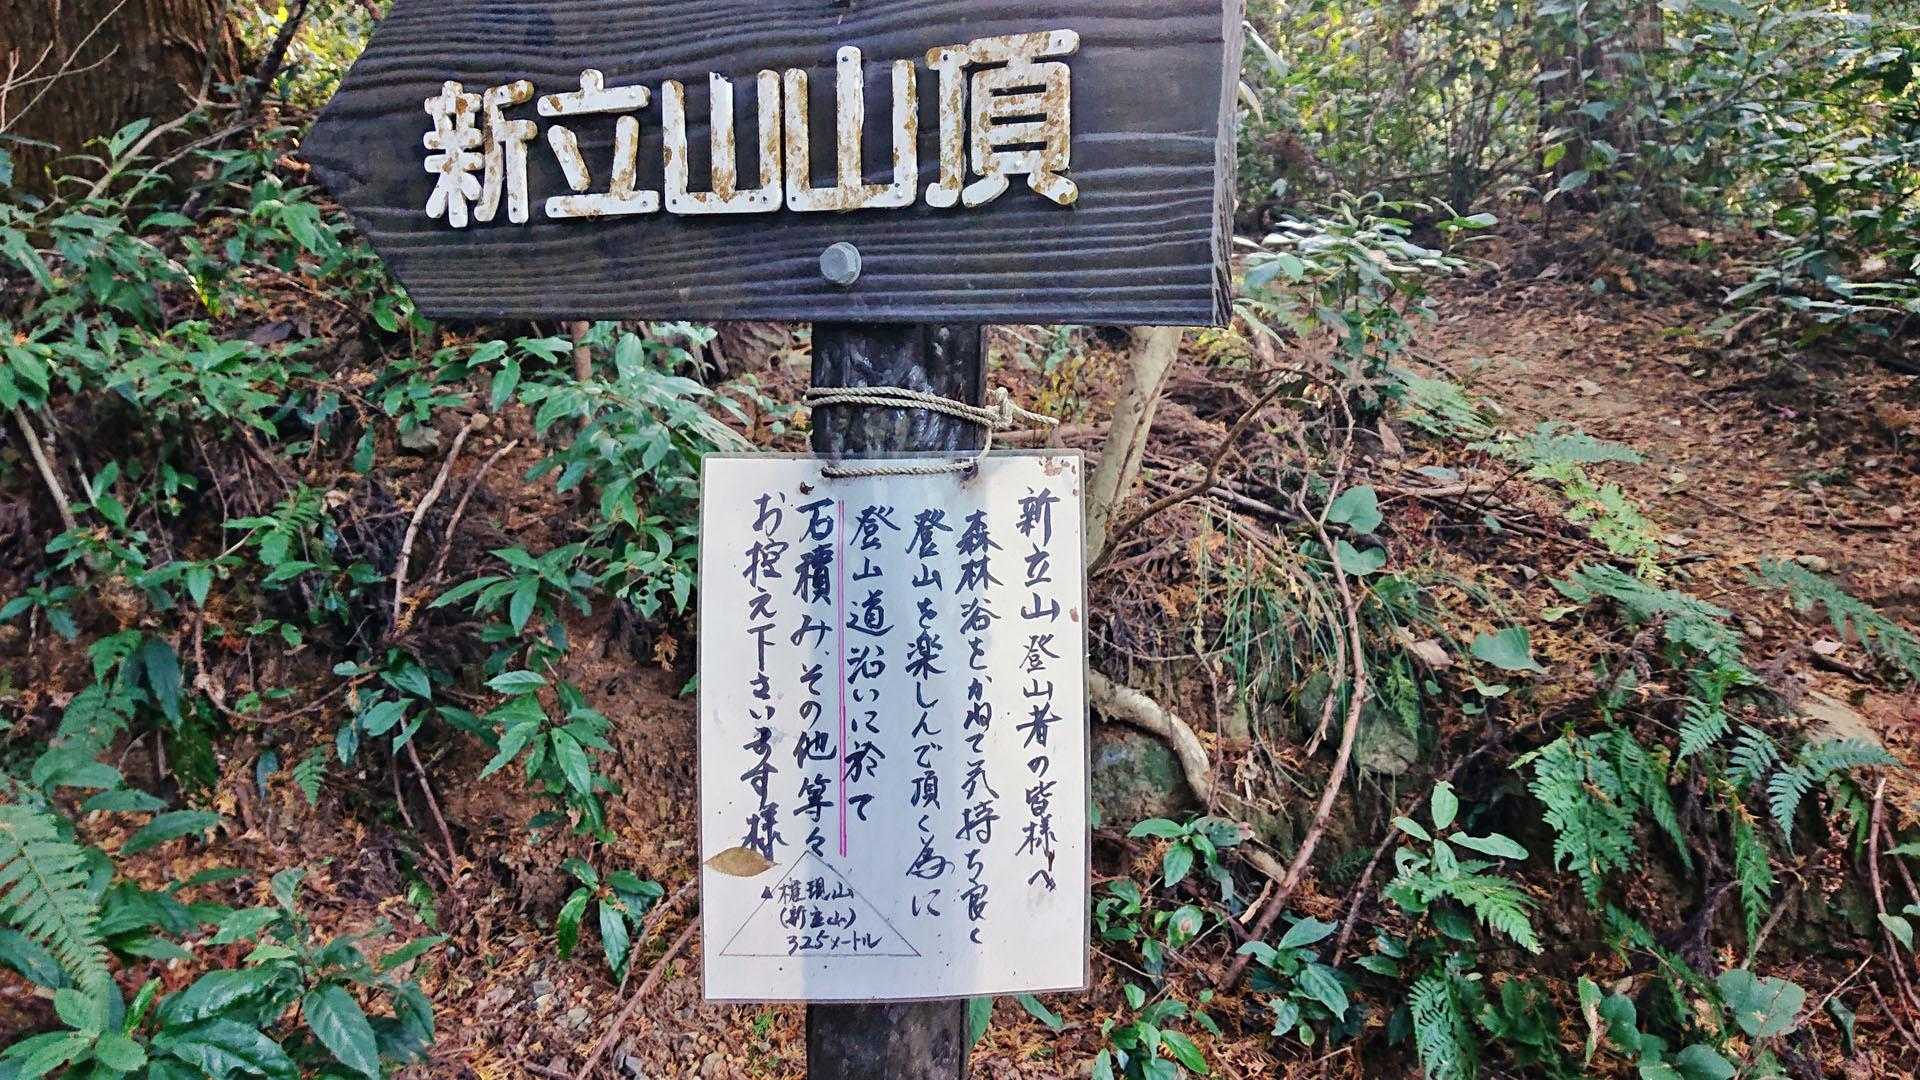 新立山山頂
新立山登山者の皆様へ
森林浴をかねて気持ち良く
登山を楽しんで頂く為に
登山道沿いに於て
石積み、その他等々
お控え下さいます様
権現山
(新立山)
325メートル